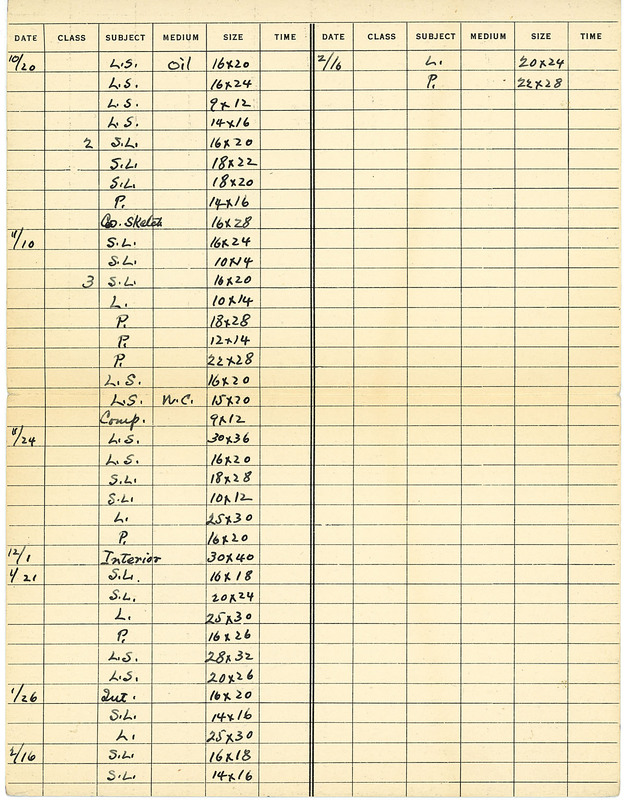 DATE CLASS SUBJECT MEDIUM SIZE TIME
10/20 L.S. Oil 16x20
L.S. 16x24
L.S. 9x12
L.S. 14x16
2 S.L. 16x20
S.L. 18x22
S.L. 18x20
P. 14x16
Co. Sketch 16x28
11/10 S.L. 16x24
S.L. 10x14
3 S.L. 16x20
L. 10x14
P. 18x28
P. 12x14
P. 22x28
L.S. 16x20
L.S. W.C. 15x20
Comp. 9x12
11/24 L.S. 30x36
L.S. 16x20
S.L. 18x28
S.L. 10x12
L. 25x30
P. 16x20
12/1 Interior 30x40
1/21 S.L. 16x18
S.L. 20x24
L. 25x30
P. 16x26
L.S. 28x32
L.S. 20x26
1/26 Int. 16x20
S.L. 14x16
L. 25x30
2/16 S.L. 16x18
S.L. 14x16
DATE CLASS SUBJECT MEDIUM SIZE TIME
2/16 L. 20x24
P. 22x28